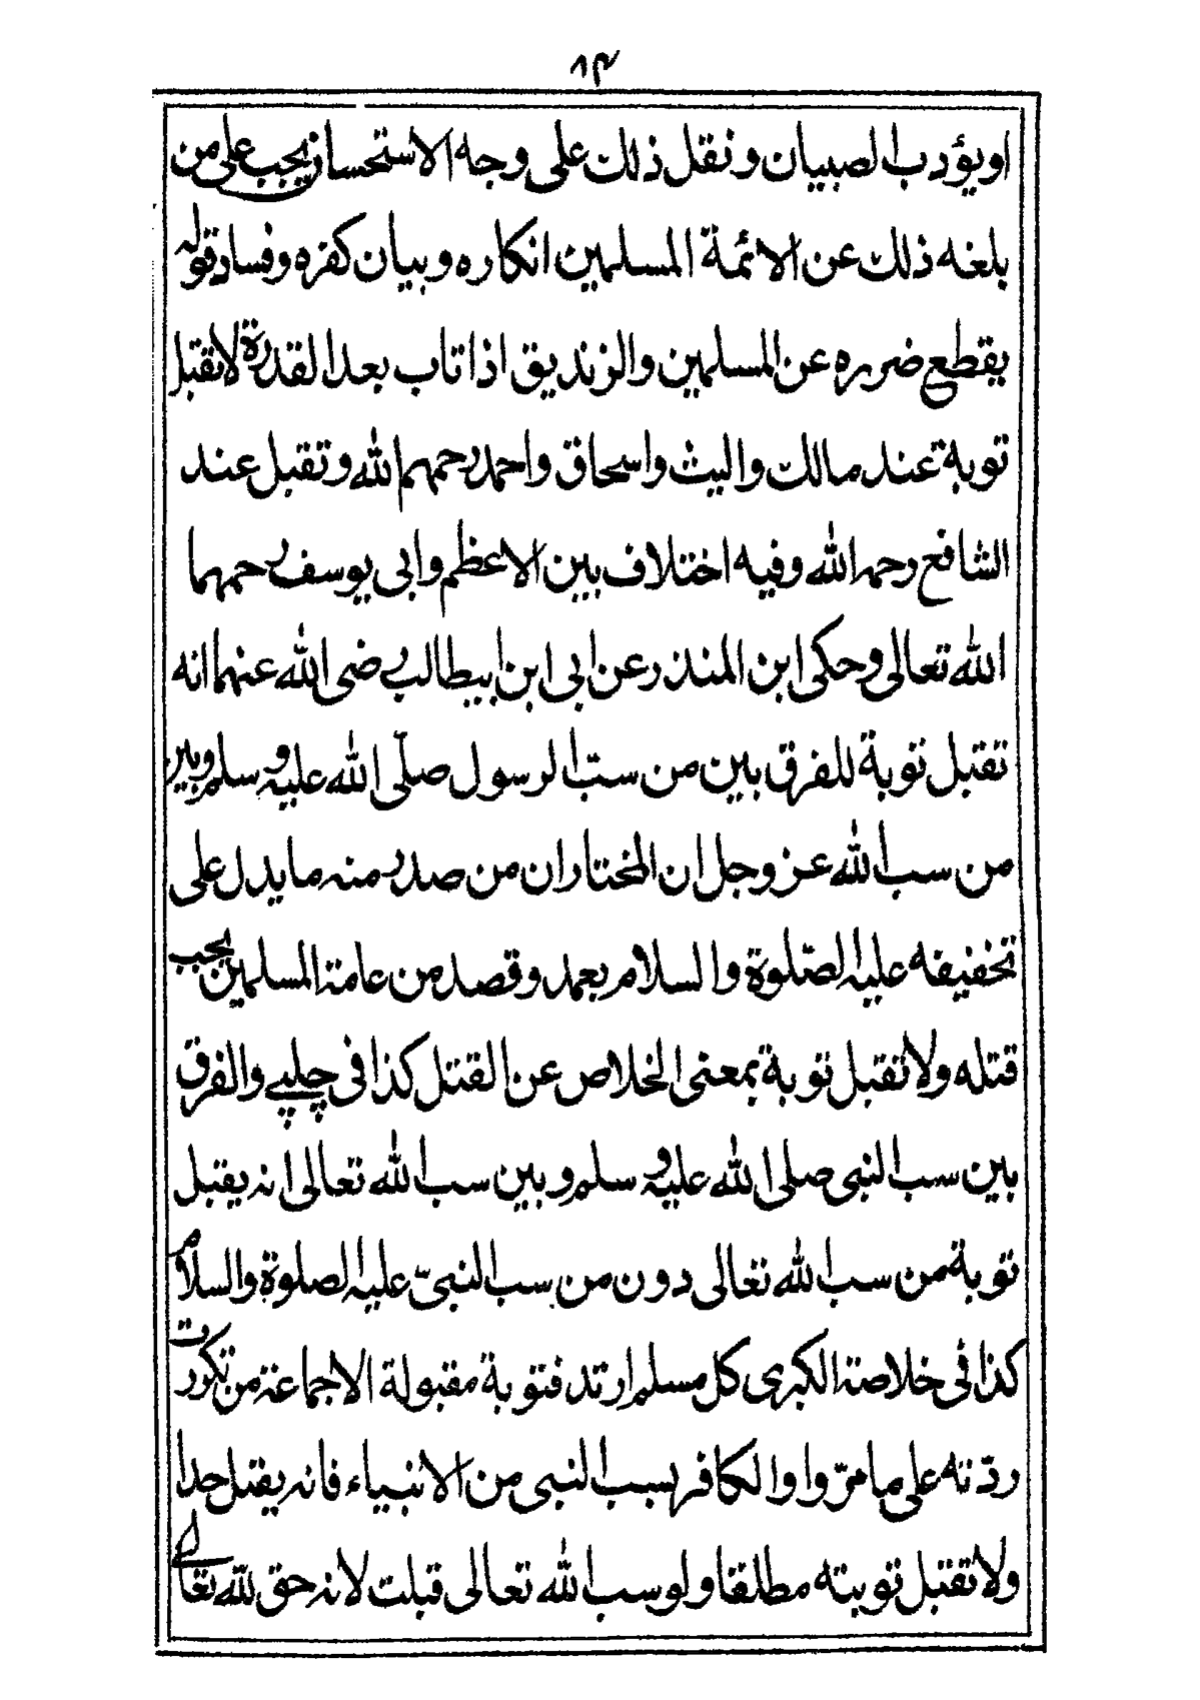 ٨٣
او يؤدب الصبيان ونقل ذلك على وجه الاستحسان يجب على من
بلغه ذلك عن الائمة المسلمين انكاره وبيان كفره وفساد قوله
يقطع ضرره عن المسلمين والزنديق اذا تاب بعد القدرة لا تقبل
توبة عند مالك واليث واسحاق واحمد رحمهم الله وتقبل عند
الشافع رحمه الله وفيه اختلاف بين الاعظم وابى يوسف رحمهما
الله تعالى وحكى ابن المنذر عن ابى ابن ابيطالب رضى الله عنهما انه
تقتبل توبة للفرق بين من سب الرسول صلّى الله عليه وسلم وبين
من سب الله عز وجل ان المختار ان من صدر منه ما يدل على
تخفيفه عليه الصّلوة والسلام بعمد وقصد من عامة المسلمين يجب
قتله ولا تقبل توبة بمعنى الخلاص عن القتل كذا فى چلپے والفرق
بين سب النبى صلى الله عليه وسلم وبين سب الله تعالى انه يقبل
توبة من سب الله تعالى دون من سب النبىّ عليه الصلوة والسلام
كذا فى خلاصة الكبرى كل مسلم ارتد فتوبة مقبولة الا جماعة من تكررت
ردّته على ما مرّوا والكافر بسب النبى من الانبياء فانه يقتل حدا
ولا تقبل توبيته مطلقا ولو سب الله تعالى قبلت لانه حق لله تعالى